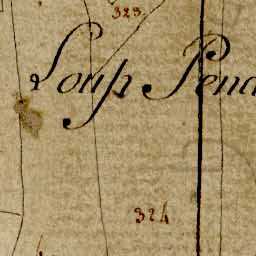 323
Loup Pend
324